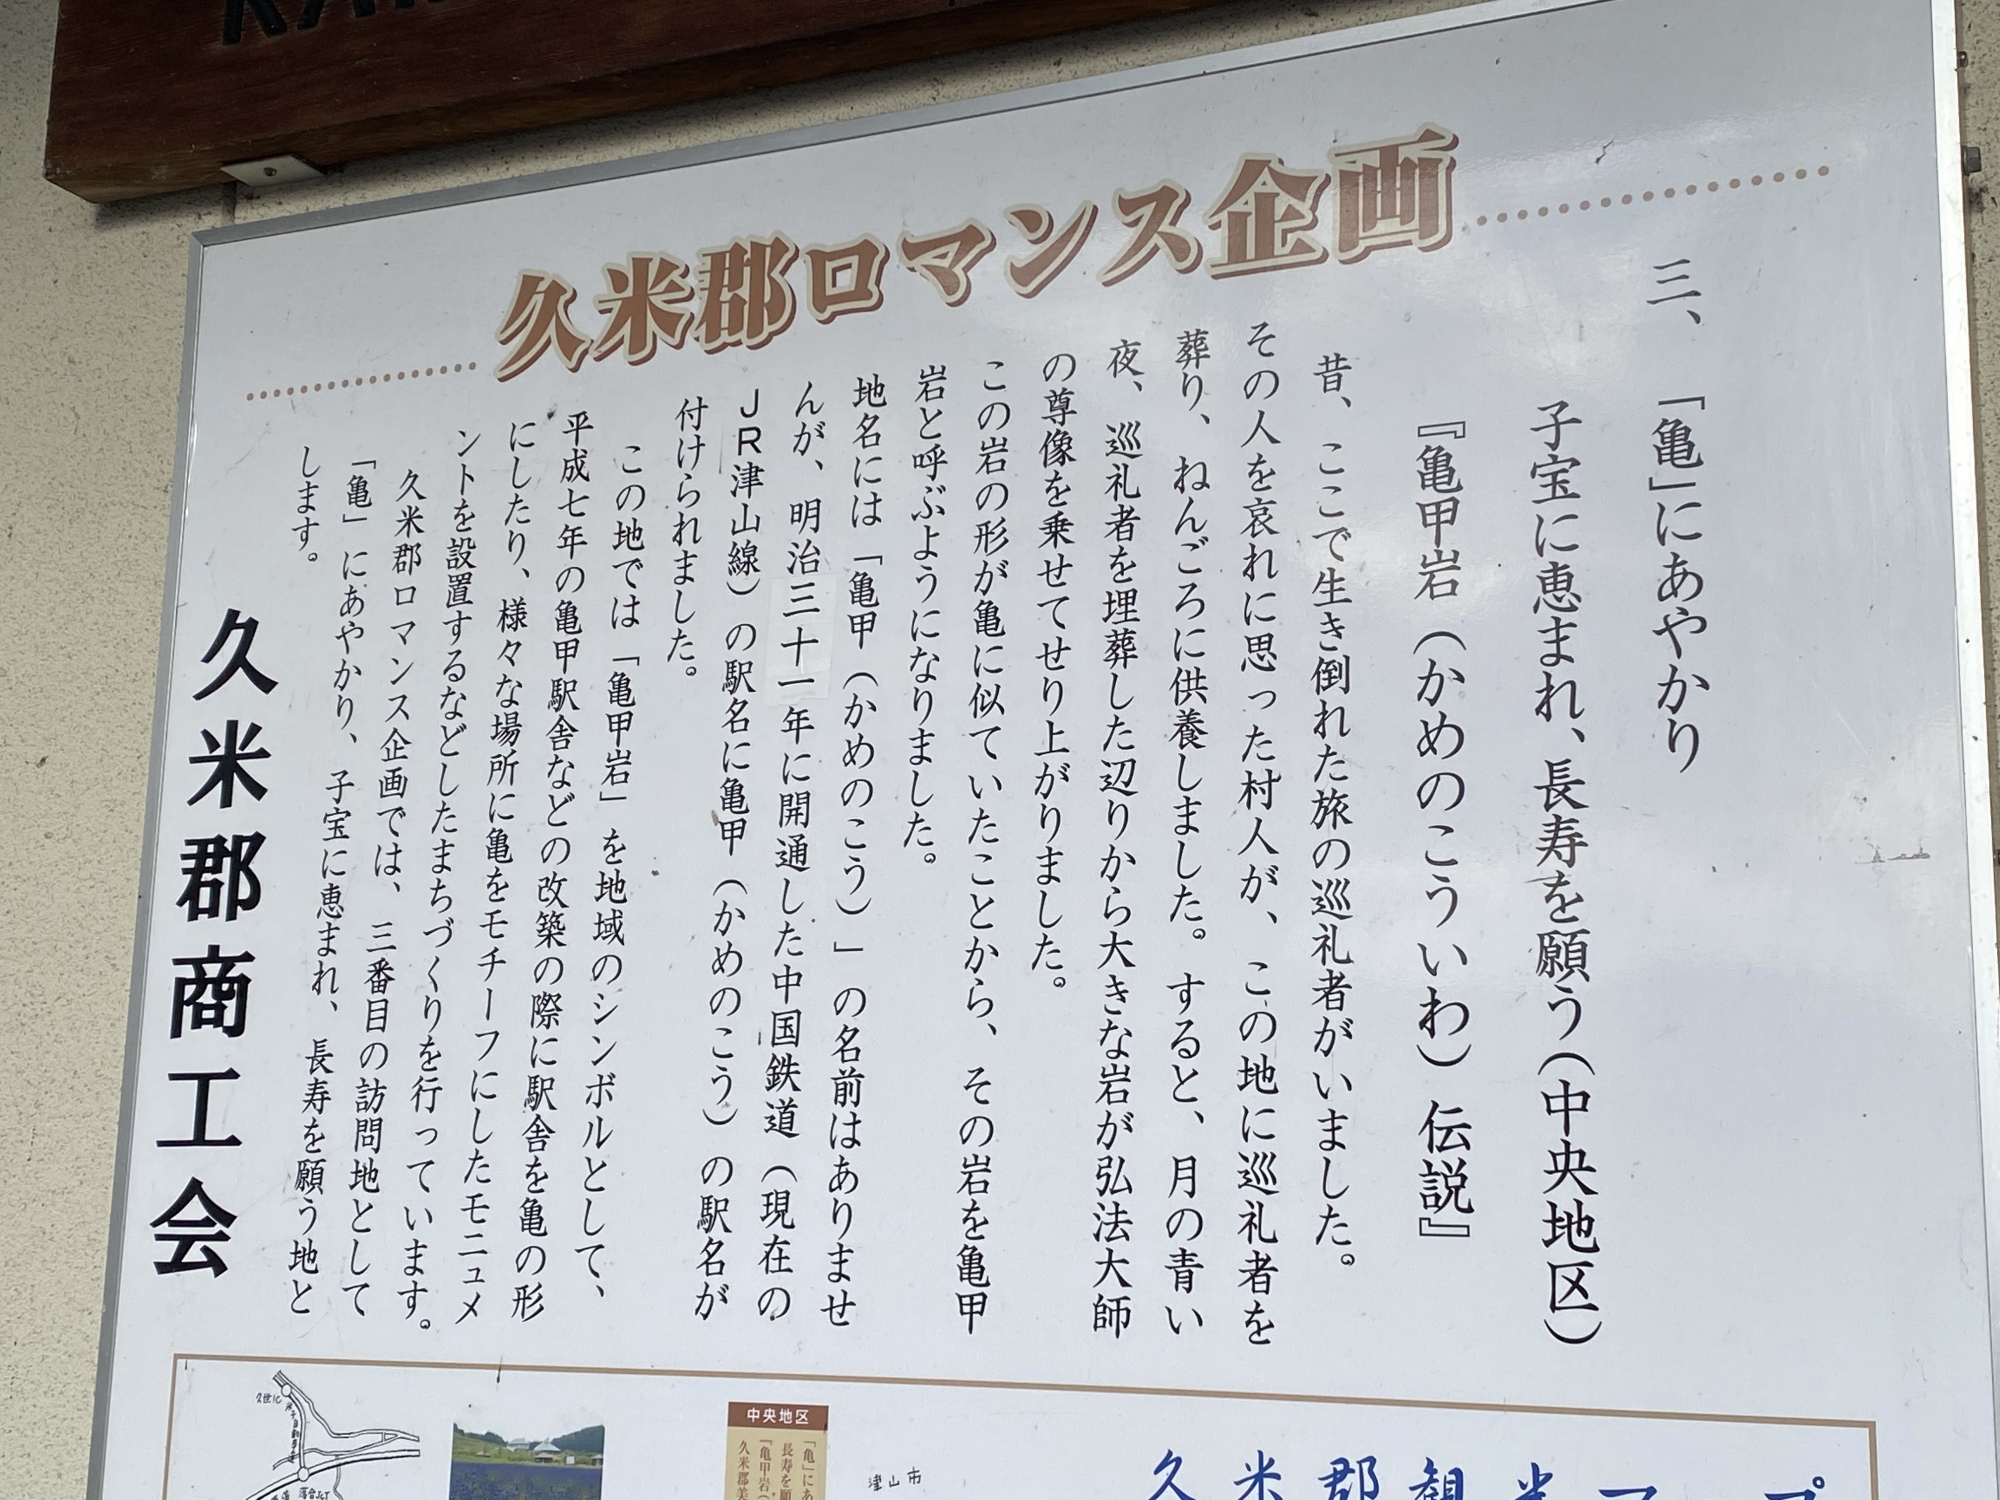 久米郡ロマンス企画
三、「亀」にあやかり
子宝に恵まれ、長寿を願う(中央地区)
『亀甲岩(かめのこういわ)伝説』
昔、ここで生き倒れた旅の巡礼者がいました。
その人を哀れに思った村人が、この地に巡礼者を
葬り、ねんごろに供養しました。すると、月の青い
夜、巡礼者を埋葬した辺りから大きな岩が弘法大師
の尊像を乗せてせり上がりました。
この岩の形が亀に似ていたことから、その岩を亀甲
岩と呼ぶようになりました。
地名には「亀甲(かめのこう)」の名前はありませ
んが、明治三十一年に開通した中国鉄道(現在の
JR津山線)の駅名に亀甲(かめのこう)の駅名が
付けられました。
この地では「亀甲岩」を地域のシンボルとして、
平成七年の亀甲駅舎などの改築の際に駅舎を亀の形
にしたり、様々な場所に亀をモチーフにしたモニュメ
ントを設置するなどしたまちづくりを行っています。
久米郡ロマンス企画では、三番目の訪問地として
「亀」にあやかり、子宝に恵まれ、長寿を願う地と
します。
久米郡商工会
久米郡観光マップ
津山市
中央地区
「亀」にあ
長寿を願
『亀甲岩(
久米郡美
久世IC
落合JCT